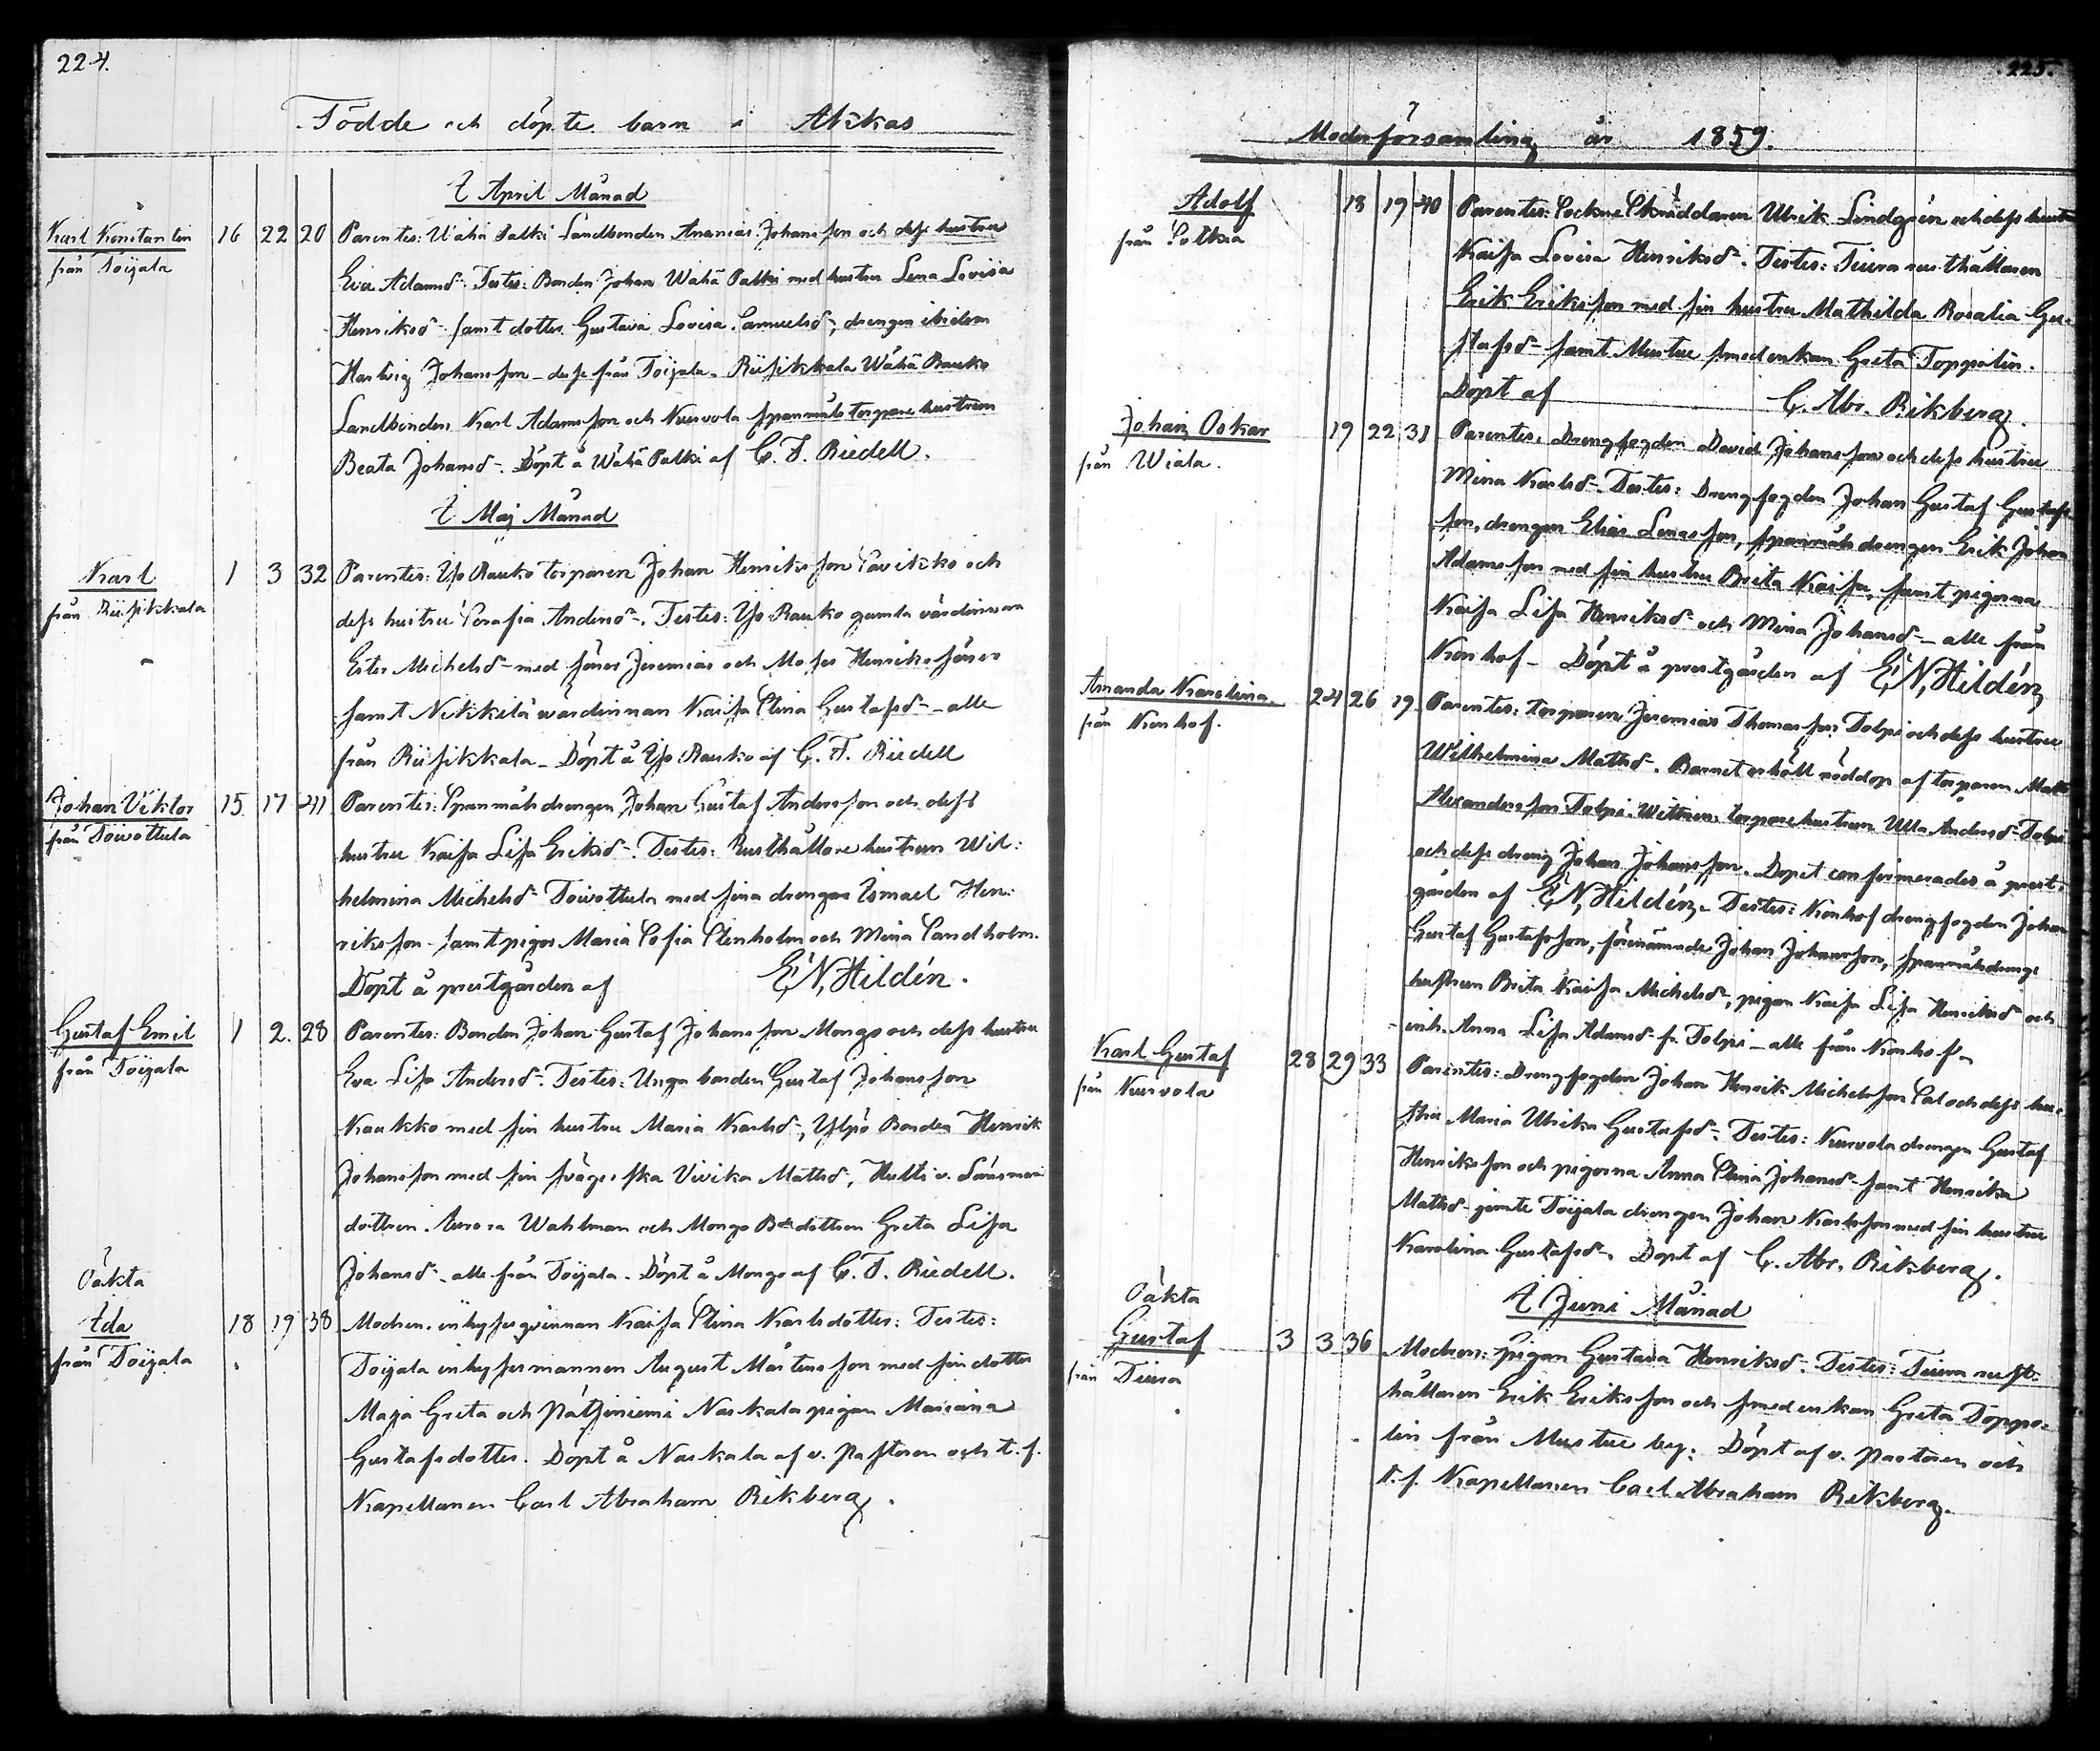 224.
Födde och döpte barn i Akkas
I April Månad
Karl Konstantin 16 22 20 Parentes: Wähä Palki Landbonden Ananias Johansson och dess hustru
från Toijala
Eva Adamsdr. Testes: Bonden Johan Wähä Palki med hustru Lena Lovisa
Henriksdr samt dotter Gustava Lovisa Samuelsdr, drengen ibidem
Hartvig Johansson – desse från Toijala. Riisikkala Wähä Rauko
Landbonden Karl Adamsson och Kurvola spanmåls torpare hustrun
Beata Johansdr. Döpt å Wähä Palki af C. F. Riedell.
I Maj Månad
Karl 1 3 32 Parentes: Yso Rauko torparen Johan Henriksson Pavikko och
från Riisikkala
dess hustru Serafia Andersdr. Testes: Yso Rauko gamla värdinnan
Ester Michelsdr med söner Jeremias och Moses Henrikssöner
samt Nikkilä värdinnan Kaisa Stina Gustafsdr – alle
från Riisikkala – Döpt å Yso Rauko af C. F. Riedell
Johan Viktor 15. 17 41 Parentes: Spanmåls drengen Johan Gustaf Andersson och dess
från Toivottula
hustru Kaisa Lisa Eriksdr. Testes: Rusthållare hustrun Wil:
helmina Michelsdr Toivottula med sina drengar Ismael Hen:
riksson – samt pigor Maria Sofia Stenholm och Mina Sandholm.
Döpt å prestgården af E. N. Hildén.
Gustaf Emil 1 2. 28 Parentes: Bonden Johan Gustaf Johansson Mongo och dess hustru
från Toijala
Eva Lisa Andersdr. Testes: Unga bonden Gustaf Johansson
Kaukko med sin hustru Maria Karlsdr, Ylpö Bonden Henrik
Johansson med sin svägerska Vivika Mattsdr, Hulti v. Länsman
dottren Aurora Wahlman och Mongo Bdedottren Greta Lisa
Johansdr – alle från Toijala – Döpt å Mongo af C. F. Riedell.
Oäkta
Ida 18 19 38 Modren: inhysesqvinnan Kaisa Stina Karlsdotter: Testes:
från Toijala
Toijala inhysesmannen August Mårtensson med sin dotter
Maja Greta och Pätsiniemi Naskala pigan Mariana
Gustafsdotter. Döpt å Naskala af v. Pastoren och t. f.
Kapellanen Carl Abraham Rikberg.
225.
Moderförsamling år 1859.
Adolf 18 19 40 Parentes: Sockne Skräddaren Ulrik Lindgrén och dess hustru
från Sotkia
Kaisa Lovisa Henriksdr. Testes: Tiura rusthållaren
Erik Eriksson med sin hustru Mathilda Rosalia Gu-
stafsdr samt Mustue smedenkan Greta Toppolin.
Döpt af C. Abr. Rikberg.
Johan Oskar 19 22 31 Parentes: Drengfogden David Johansson och dess hustru
från Wiala.
Mina Karlsdr. Testes: Drengfogden Johan Gustaf Gustafs
son, drengen Elias Lenasson, spanmåls drengen Erik Johan
Adamsson med sin hustru Brita Kaisa, samt pigorna
Kaisa Lisa Henriksdr och Mina Johansdr – alle från
Konhof – Döpt å prestgården af E. N. Hildén
Amanda Karolina 24 26 19. Parentes: torparen Jeremias Thomasson Tolpi och dess hustru
från Konhof.
Wilhelmina Mattsdr. Barnet erhöll nöddop af torparen Matts
Alexandersson Tolpi. Wittnen: torpare hustrun Ulla Andersdr Tolpi
och dess dreng Johan Johansson. Dopet confirmerades å prest-
gården af E. N. Hildén. – Testes: Konhof drengfogden Johan
Gustaf Gustafsson, förenämnde Johan Johansson, spanmålsdrengs
hustrun Brita Kaisa Michelsdr, pigan Kaisa Lisa Henriksdr och
enk. Anna Lisa Adamsdr fr. Tolpi – alle från Konhof
Karl Gustaf 28 29 33 Parentes: Drengfogden Johan Henrik Michelsson Sal och dess hu-
från Kurvola
stru Maria Ulrika Gustafsdr. Testes: Kurvola drengen Gustaf
Henriksson och pigorna Anna Stina Johansdr samt Henrika
Mattsdr jemte Toijala drengen Johan Karlsson med sin hustru
Karolina Gustafsdr. Döpt af C. Abr. Rikberg.
I Juni Månad
Oäkta
Gustaf 3 3 36 Modren: pigan Gustava Henriksdr. Testes: Tiura rust-
från Tiura
hållaren Erik Eriksson och smedenkan Greta Toppo-
lin från Mustue by: Döpt af v. Pastoren och
t. f. Kapellanen Carl Abraham Rikberg.